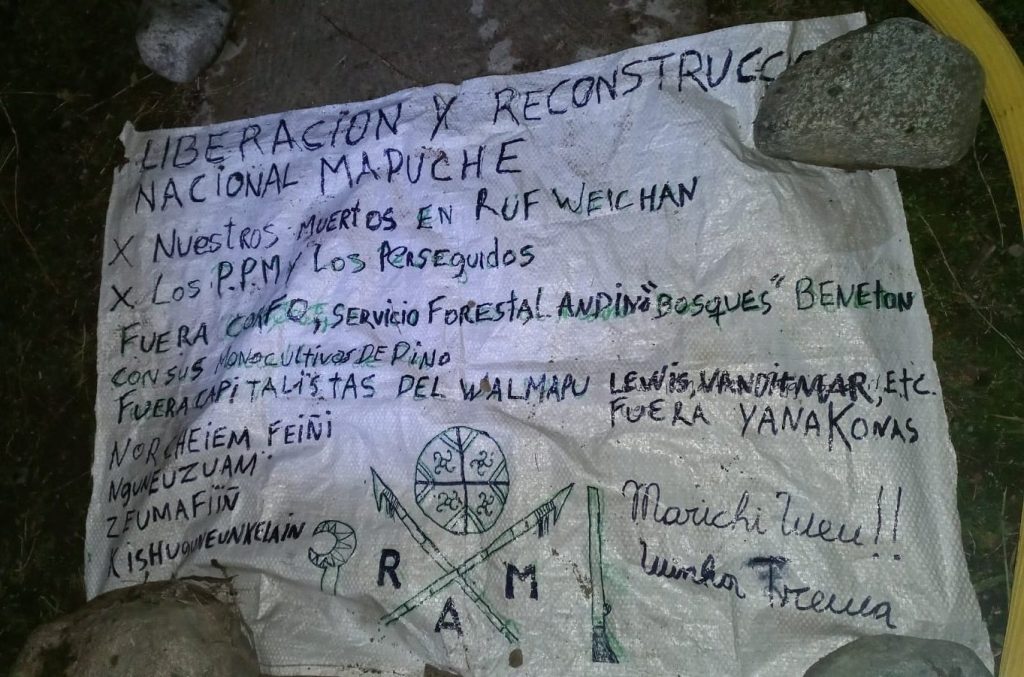 LIBERACION Y RECONSTRUCCIO
NACIONAL MAPUCHE
X NUESTROS MUERTOS EN RUF WEICHAN
X LOS P.P.M Y LOS PERSEGUIDOS
FUERA CORFO, SERVICIO FORESTAL ANDINO "BOSQUES" BENETON
CON SUS MONOCULTIVOS DE PINO
FUERA CAPITALISTAS DEL WALMAPU LEWIS, VANDITMAR, ETC.
FUERA YANAKONAS
NORCHEIEM FEIÑI
NGUNEUZUAM
ZEUMAFIIÑ
KISHUGUNEUNKELAIN
R A M
Marichi Weu!!
Winka Trewa